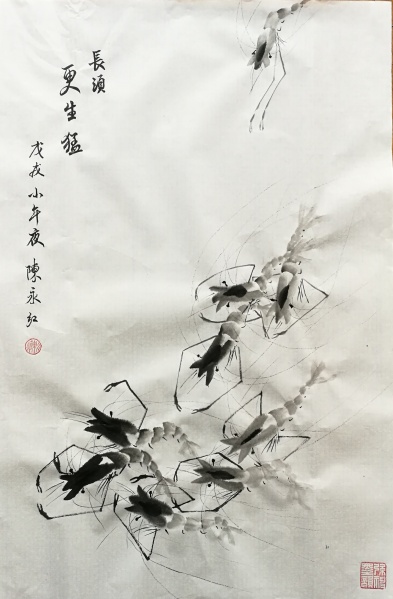 長須
更生猛
戊戌小午夜 陳永紅